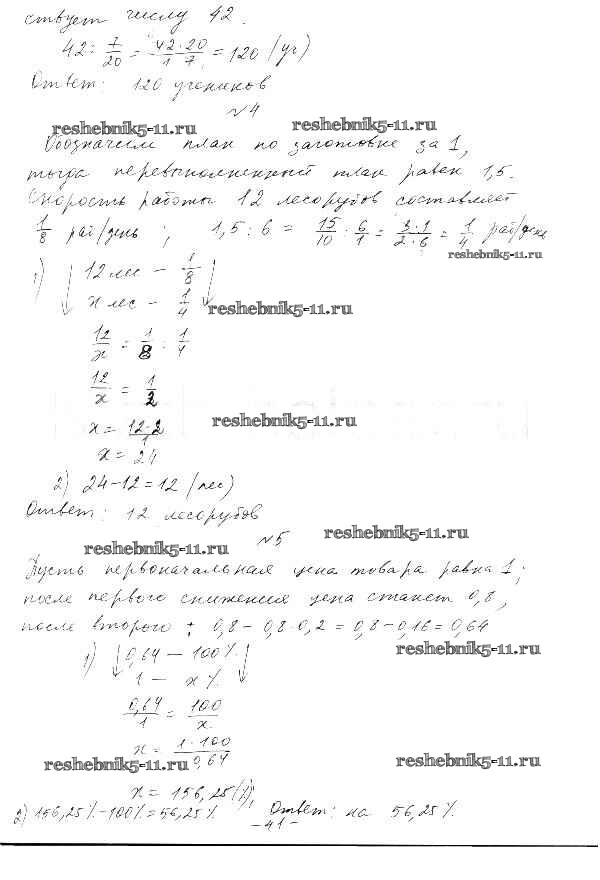 ствует числу 42.
42 : 7/20 = 42·20/1·7 = 120 (уч)
Ответ: 120 учеников
№4
reshebnik5-11.ru reshebnik5-11.ru
Обозначим план по заготовке за 1,
тогда перевыполненный план равен 1,5.
Скорость работы 12 лесорубов составляет
1/8 раб/день; 1,5 : 6 = 15/10 : 6/1 = 3·1/2·6 = 1/4 раб/день
reshebnik5-11.ru
1) ↓ 12 лес – 1/8 ↓
x лес – 1/4
reshebnik5-11.ru
12/x = 1/8 : 1/4
12/x = 1/2
x = 12·2/1
reshebnik5-11.ru
x = 24
2) 24-12=12 (лес)
Ответ: 12 лесорубов
№5
reshebnik5-11.ru reshebnik5-11.ru
Пусть первоначальная цена товара равна 1;
после первого снижения цена станет 0,8,
после второго : 0,8 – 0,8·0,2 = 0,8 – 0,16 = 0,64
1) ↓ 0,64 – 100% ↓
reshebnik5-11.ru
1 – x%
0,64/1 = 100/x
x = 1·100/0,64
reshebnik5-11.ru reshebnik5-11.ru
x = 156,25(%);
2) 156,25%-100%=56,25%. Ответ: на 56,25%.
-41-